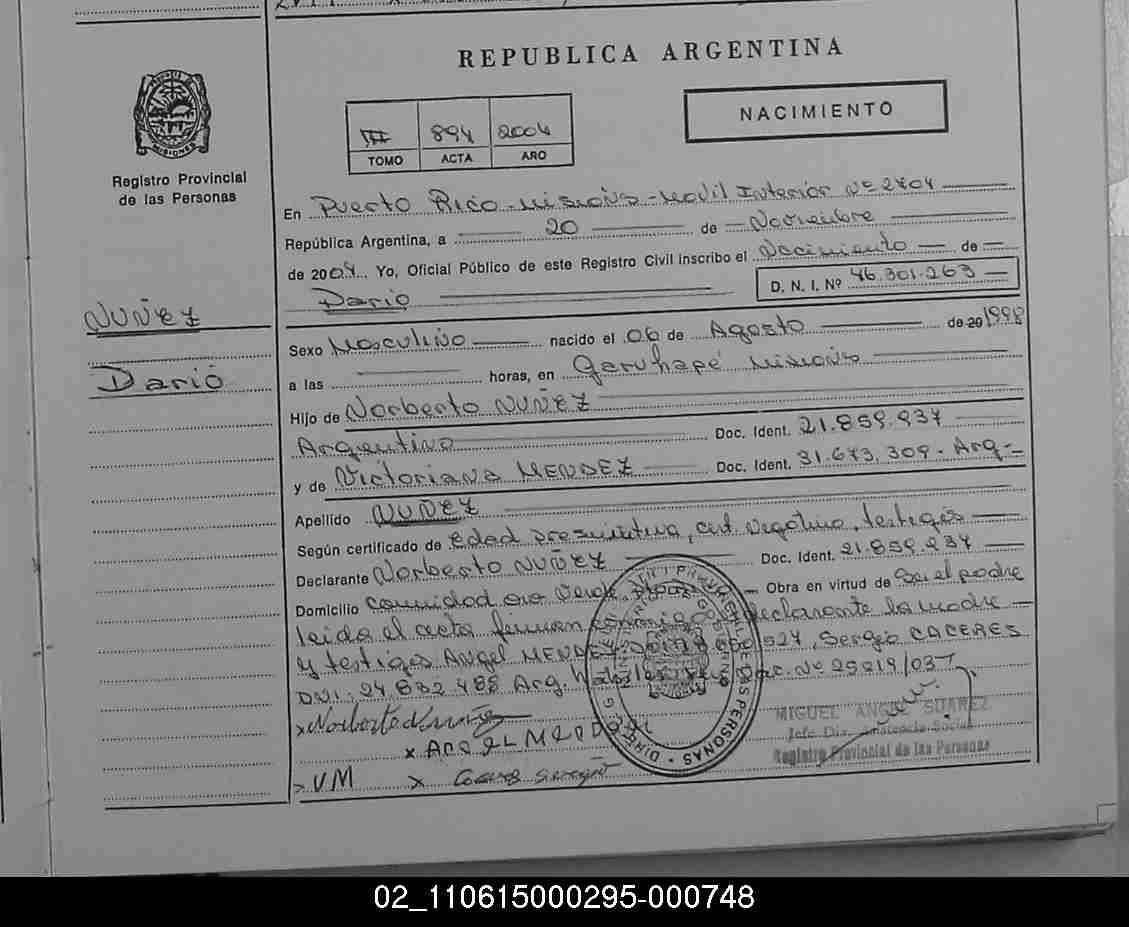 REPUBLICA ARGENTINA
NACIMIENTO
III 894 2004
TOMO ACTA AÑO
MISIONES
Registro Provincial
de las Personas
En Puerto Rico - Misiones - Movil Interior Nº 2404
República Argentina, a 20 de Noviembre
de 2004 Yo, Oficial Público de este Registro Civil inscribo el Nacimiento de
Dario
D. N. I. Nº 46.301.263
NUÑEZ
Dario
Sexo Masculino nacido el 06 de Agosto de 20 1998
a las horas, en Garuhapé Misiones
Hijo de Norberto NUÑEZ
Argentino Doc. Ident. 21.859.937
y de Victoriana MENDEZ Doc. Ident. 31.673.309 - Arg -
Apellido NUÑEZ
Según certificado de Edad presuntiva, cert. Negativo, testigos
Declarante Norberto NUÑEZ Doc. Ident. 21.859.937
Domicilio Comunidad Ava Verde Obra en virtud de Ser el padre
leida el acta firman conmigo declarante la madre
y testigos Angel MENDEZ Sergio CACERES
DNI: 24.632.488 Arg. Doc. Nº 25819/037
Norberto Nuñez
x
x VM x Caceres Sergio
MIGUEL ANGEL SUAREZ
Jefe Div. Asistencia Social
Registro Provincial de las Personas
02_110615000295-000748